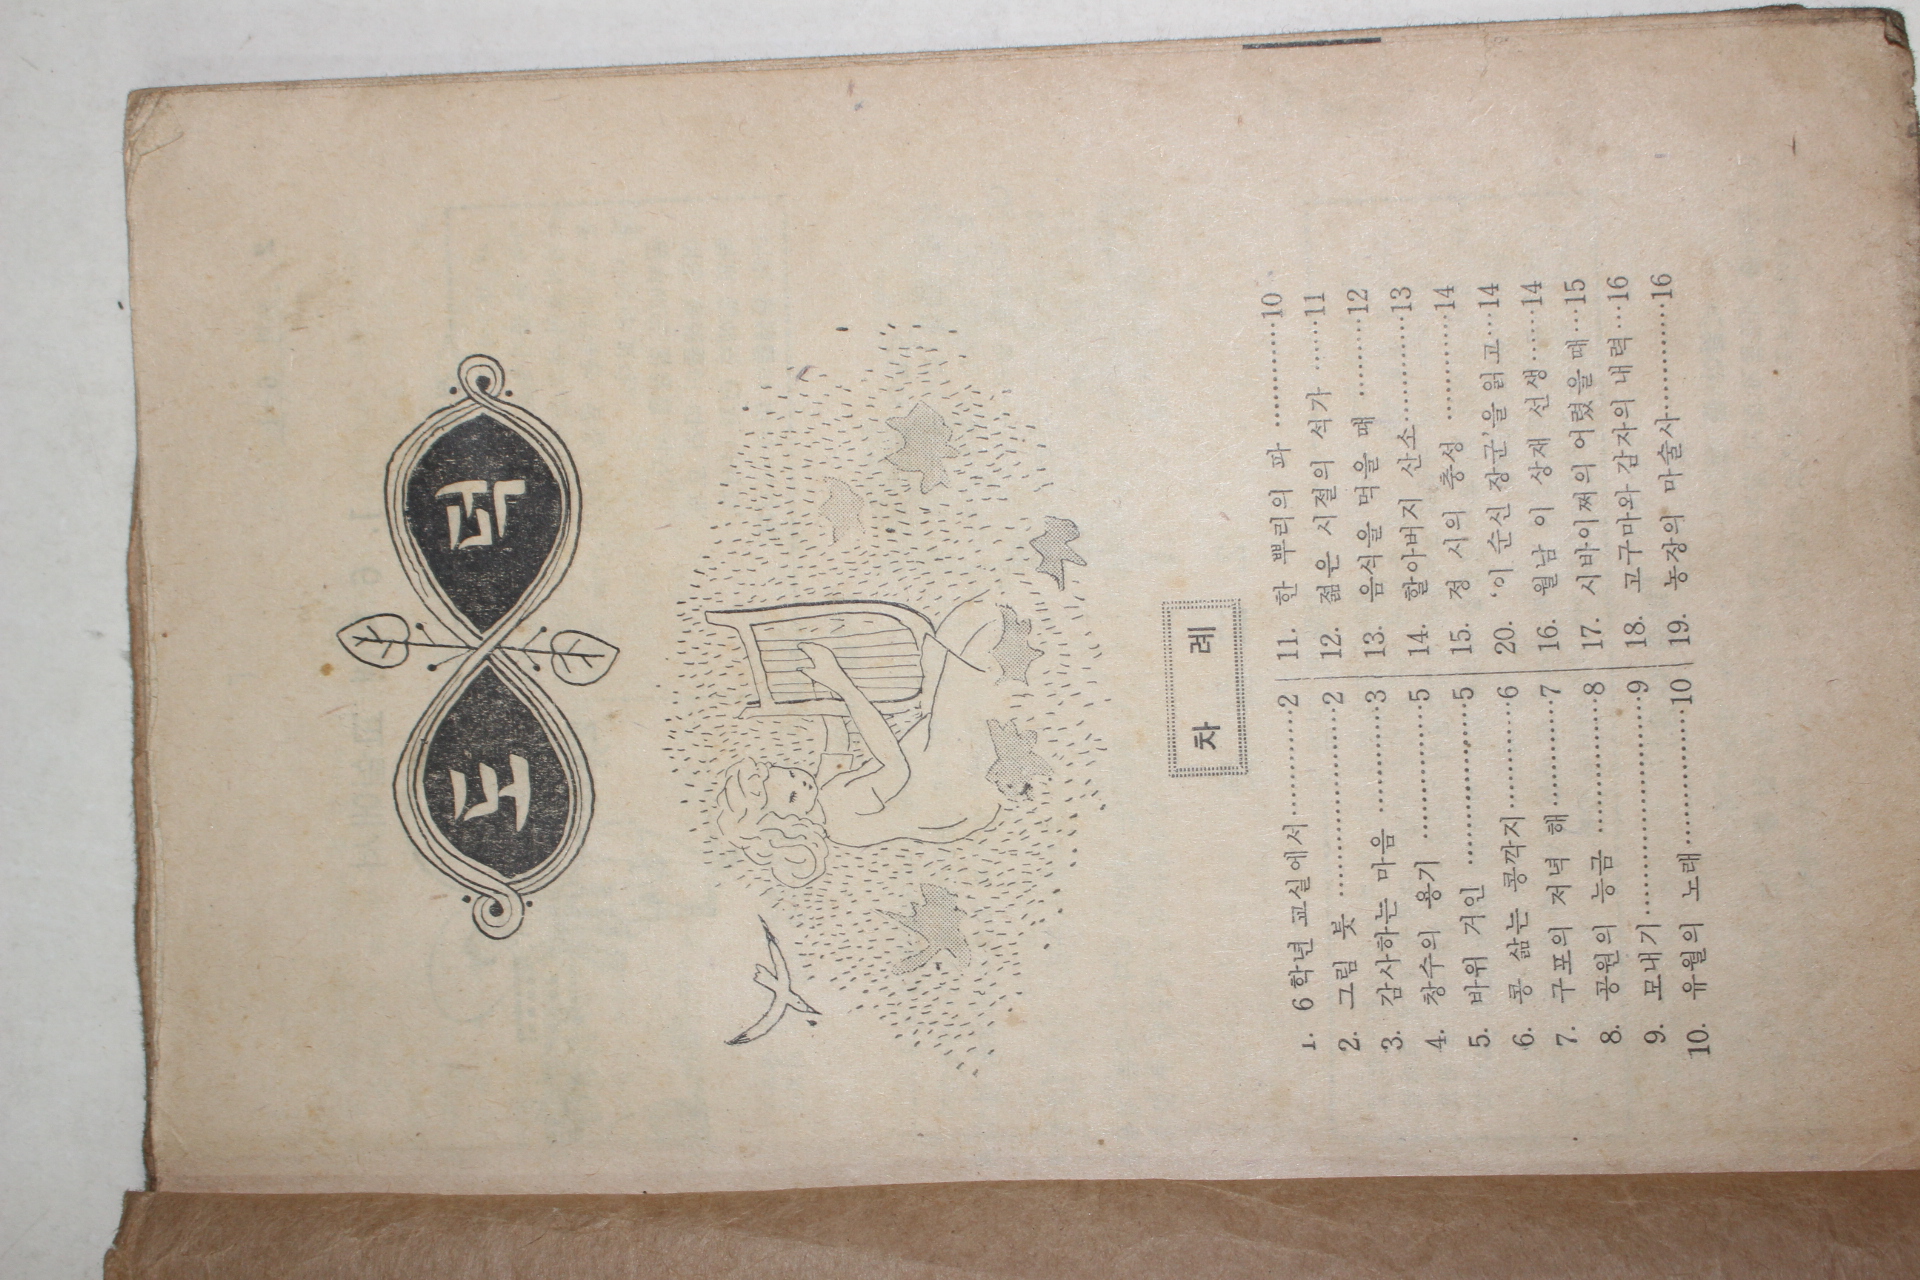 도덕
차 례
1. 6 학년 교실에서…………2
2. 그림 붓 …………………2
3. 감사하는 마음 …………3
4. 창수의 용기 ……………5
5. 바위 거인 ………………5
6. 콩 삶는 콩깍지…………6
7. 구포의 저녁 해 …………7
8. 공원의 능금 ……………8
9. 모내기……………………9
10. 유월의 노래……………10
11. 한 뿌리의 파 …………10
12. 젊은 시절의 석가 ……11
13. 음식을 먹을 때 ………12
14. 할아버지 산소…………13
15. 정 시의 충성 …………14
20. ‘이 순신 장군’을 읽고…14
16. 월남 이 상재 선생……14
17. 시바이쩌의 어렸을 때…15
18. 고구마와 감자의 내력…16
19. 농장의 마술사…………16